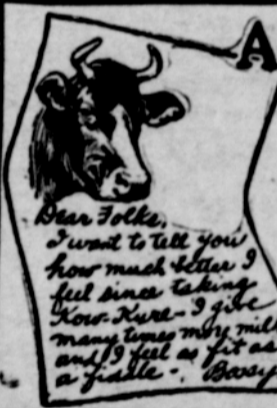 A
Dear Folks,
I want to tell you
how much better I
feel since taking
Kow-Kure - I give
many times more milk
and I feel as fit as
a fiddle - . Bossy